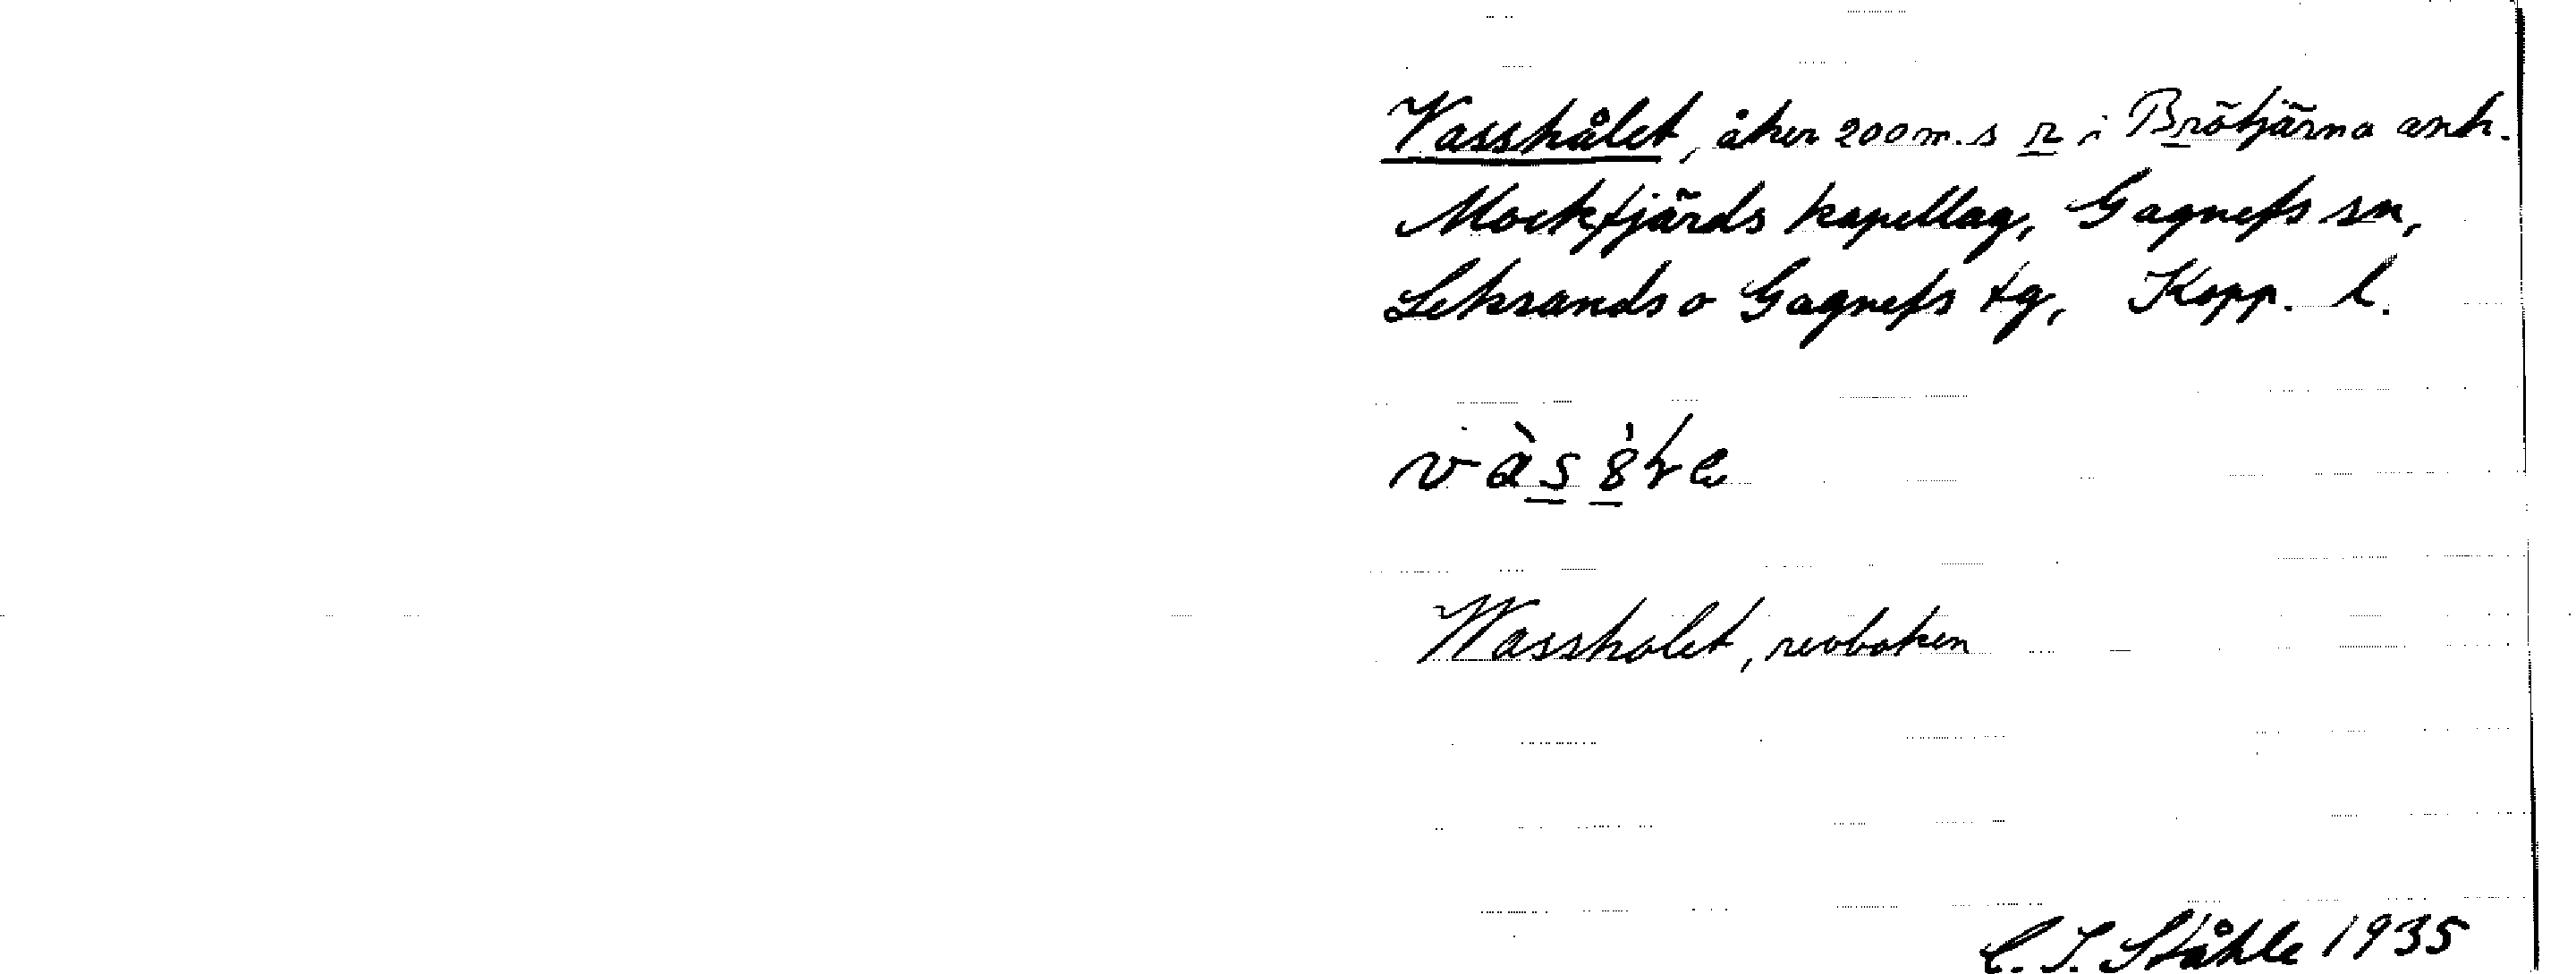 Vasshålet, åker 200 m. s r i Brötjärna ask.
Mockfjärds kapellag, Gagnefs sn,
Leksands o Gagnefs tg, Kopp. l.
Wassholet, revboken
C. I. Ståhle 1935